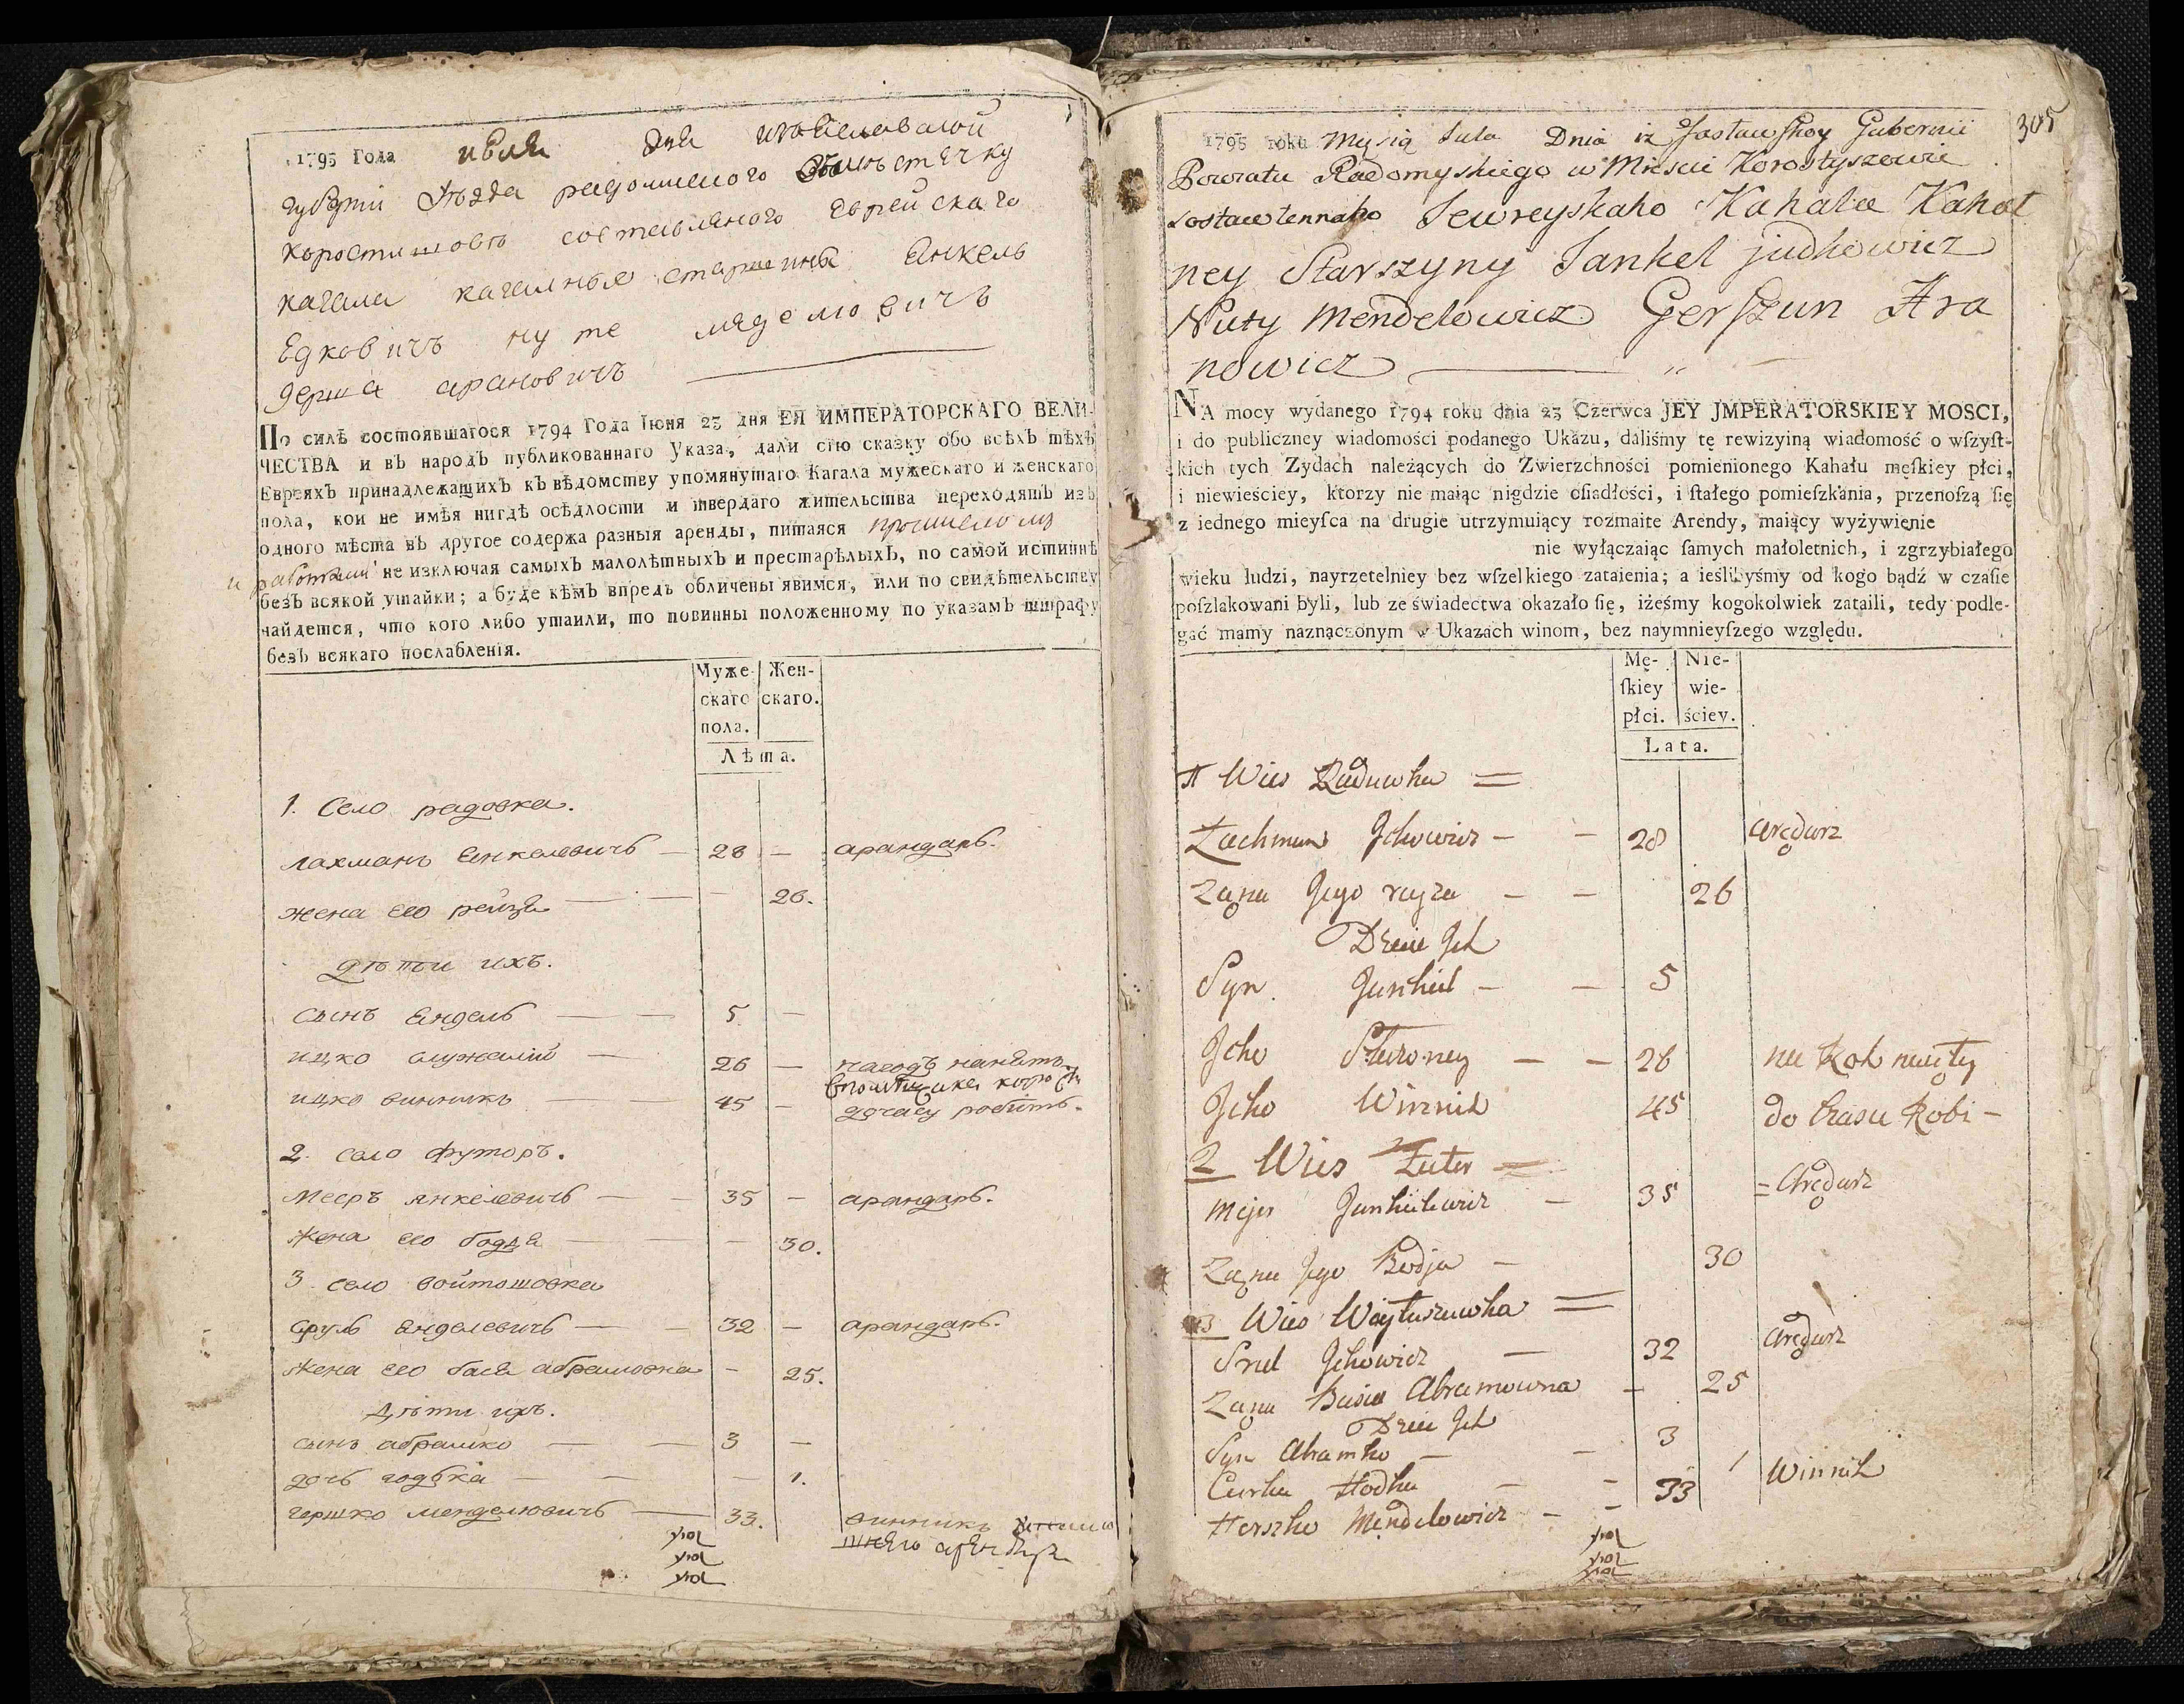 1795 Года июля дня изяславской
губерніи уезда радомиского въ местечку
коростишовъ составленого еврейскаго
кагала кагалные старшины Янкель
Едковичъ нуте мяделювичъ
герша арановичъ
По силѣ состоявшагося 1794 Года Іюня 23 дня ЕЯ ИМПЕРАТОРСКАГО ВЕЛИ-
ЧЕСТВА и въ народъ публикованнаго Указа, дали сію сказку обо всѣхъ тѣхъ
Евреяхъ принадлежащихъ къ вѣдомству упомянутаго Кагала мужескаго и женскаго
пола, кои не имѣя нигдѣ осѣдлости и твердаго жительства переходятъ изъ
одного мѣста въ другое содержа разныя аренды, питаяся промисломъ
и работами не изключая самыхъ малолѣтныхъ и престарѣлыхъ, по самой истиннѣ
безъ всякой утайки; а буде кѣмъ впредь обличены явимся, или по свидѣтельству
найдется, что кого либо утаили, то повинны положенному по указамъ штрафу
безъ всякаго послабленія.
Муже- Жен-
скаго скаго.
пола.
Лѣта.
1. Село радовка.
лахманъ Янкелевичъ — 28 — арандарь.
жена его рейзя — — — 26.
дѣти ихъ.
сынъ Яндель — — 5. —
ицко служалій — 26 — на годъ нанятъ
ицко винникъ — — 45 — дочасу робитъ.
2. село футоръ.
меeръ янкелевичъ — — 35 — арандарь.
жена его бодя — — — 30.
3. село войташовка
сруль янделевичъ — — 32 — арандарь.
жена его бася абрамовна — 25.
дѣти ихъ.
сынъ абрамко — — 3 —
дочь годька — — — 1.
гершко менделювичъ — 33. винникъ
305
1795 roku Mysią Iula Dnia iz Jastawskoy Gubernii
Powiatu Radomyskiego w Miescie Korostyszewie
sostawlennaho Jewreyskaho Kahala Kahal
ney Starszyny Jankel judkowicz
Nuty Mendelowicz Gerszun Ara
nowicz — „ —
NA mocy wydanego 1794 roku dnia 23 Czerwca JEY JMPERATORSKIEY MOSCI,
i do publiczney wiadomości podanego Ukazu, daliśmy tę rewizyiną wiadomość o wſzyſt-
kich tych Zydach należących do Zwierzchności pomienionego Kahału męſkiey płci,
i niewieściey, ktorzy nie maiąc nigdzie oſiadłości, i ſtałego pomieſzkania, przenoſzą ſię
z iednego mieyſca na drugie utrzymuiący rozmaite Arendy, maiący wyżywienie
nie wyłączaiąc ſamych małoletnich, i zgrzybiałego
wieku ludzi, nayrzetelniey bez wſzelkiego zataienia; a ieślibyśmy od kogo bądź w czaſie
poſzlakowani byli, lub ze świadectwa okazało ſię, iżeśmy kogokolwiek zataili, tedy podle-
gać mamy naznączonym w Ukazach winom, bez naymnieyſzego względu.
Mę- Nie-
ſkiey wie-
płci. ściey.
Lata.
Wies Raduwka =
Lachman Jckowicz — — 28 arędarz
Ząna Jego rayza — — 26
Dzieie Jch
Syn Junkiel — — 5
Jcko Sturoney — — 26 na Rok naięty
Jcko Winnik 45 do Czasu Robi —
2 Wies Futer =
Mejer Junkielewicz — 35 = Arędarz
Ząna Jego Bodja — 30
3 Wies Woytuszuwka =
Srul Jckowicz — 32 arędarz
Ząna Basia Abramowna — 25
Dzieie Jch
Syn Abramko — — 3
Curka Hodka — — 1
Herszko Mendelowicz — — 33 Winnik